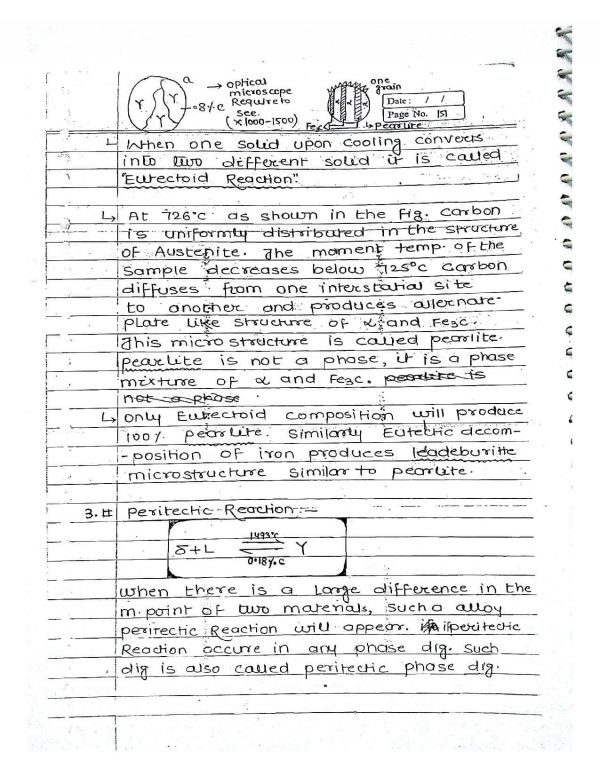 a
→ optical
microscope
Require to
see.
(×1000-1500)
γ
γ
γ
.8%c
one
grain
Date: / /
Page No. 151
Fe3c
↳ Pearlite
↳ When one solid upon cooling converts
into two different solid it is called
"Eutectoid Reaction".
↳ At 726°c as shown in the Fig. carbon
is uniformly distributed in the structure
of Austenite. The moment temp. of the
sample decreases below 725°c carbon
diffuses from one interstatial site
to another and produces alternate
plate like structure of α, and Fe3c.
This micro structure is called pearlite.
pearlite is not a phase, it is a phase
mixture of α and Fe3c. pearlite is
not a phase.
↳ only Eutectoid composition will produce
100% pearlite. Similarly Eutectic decom-
-position of iron produces leadeburitte
microstructure similar to pearlite.
3. # Peritectic Reaction :-
1493°c
δ+L ⇌ γ
0.18%c
when there is a large difference in the
m.point of two materials, such a alloy
peritectic Reaction will appear. if peritectic
Reaction occure in any phase dig. such
dig is also called peritectic phase dig.